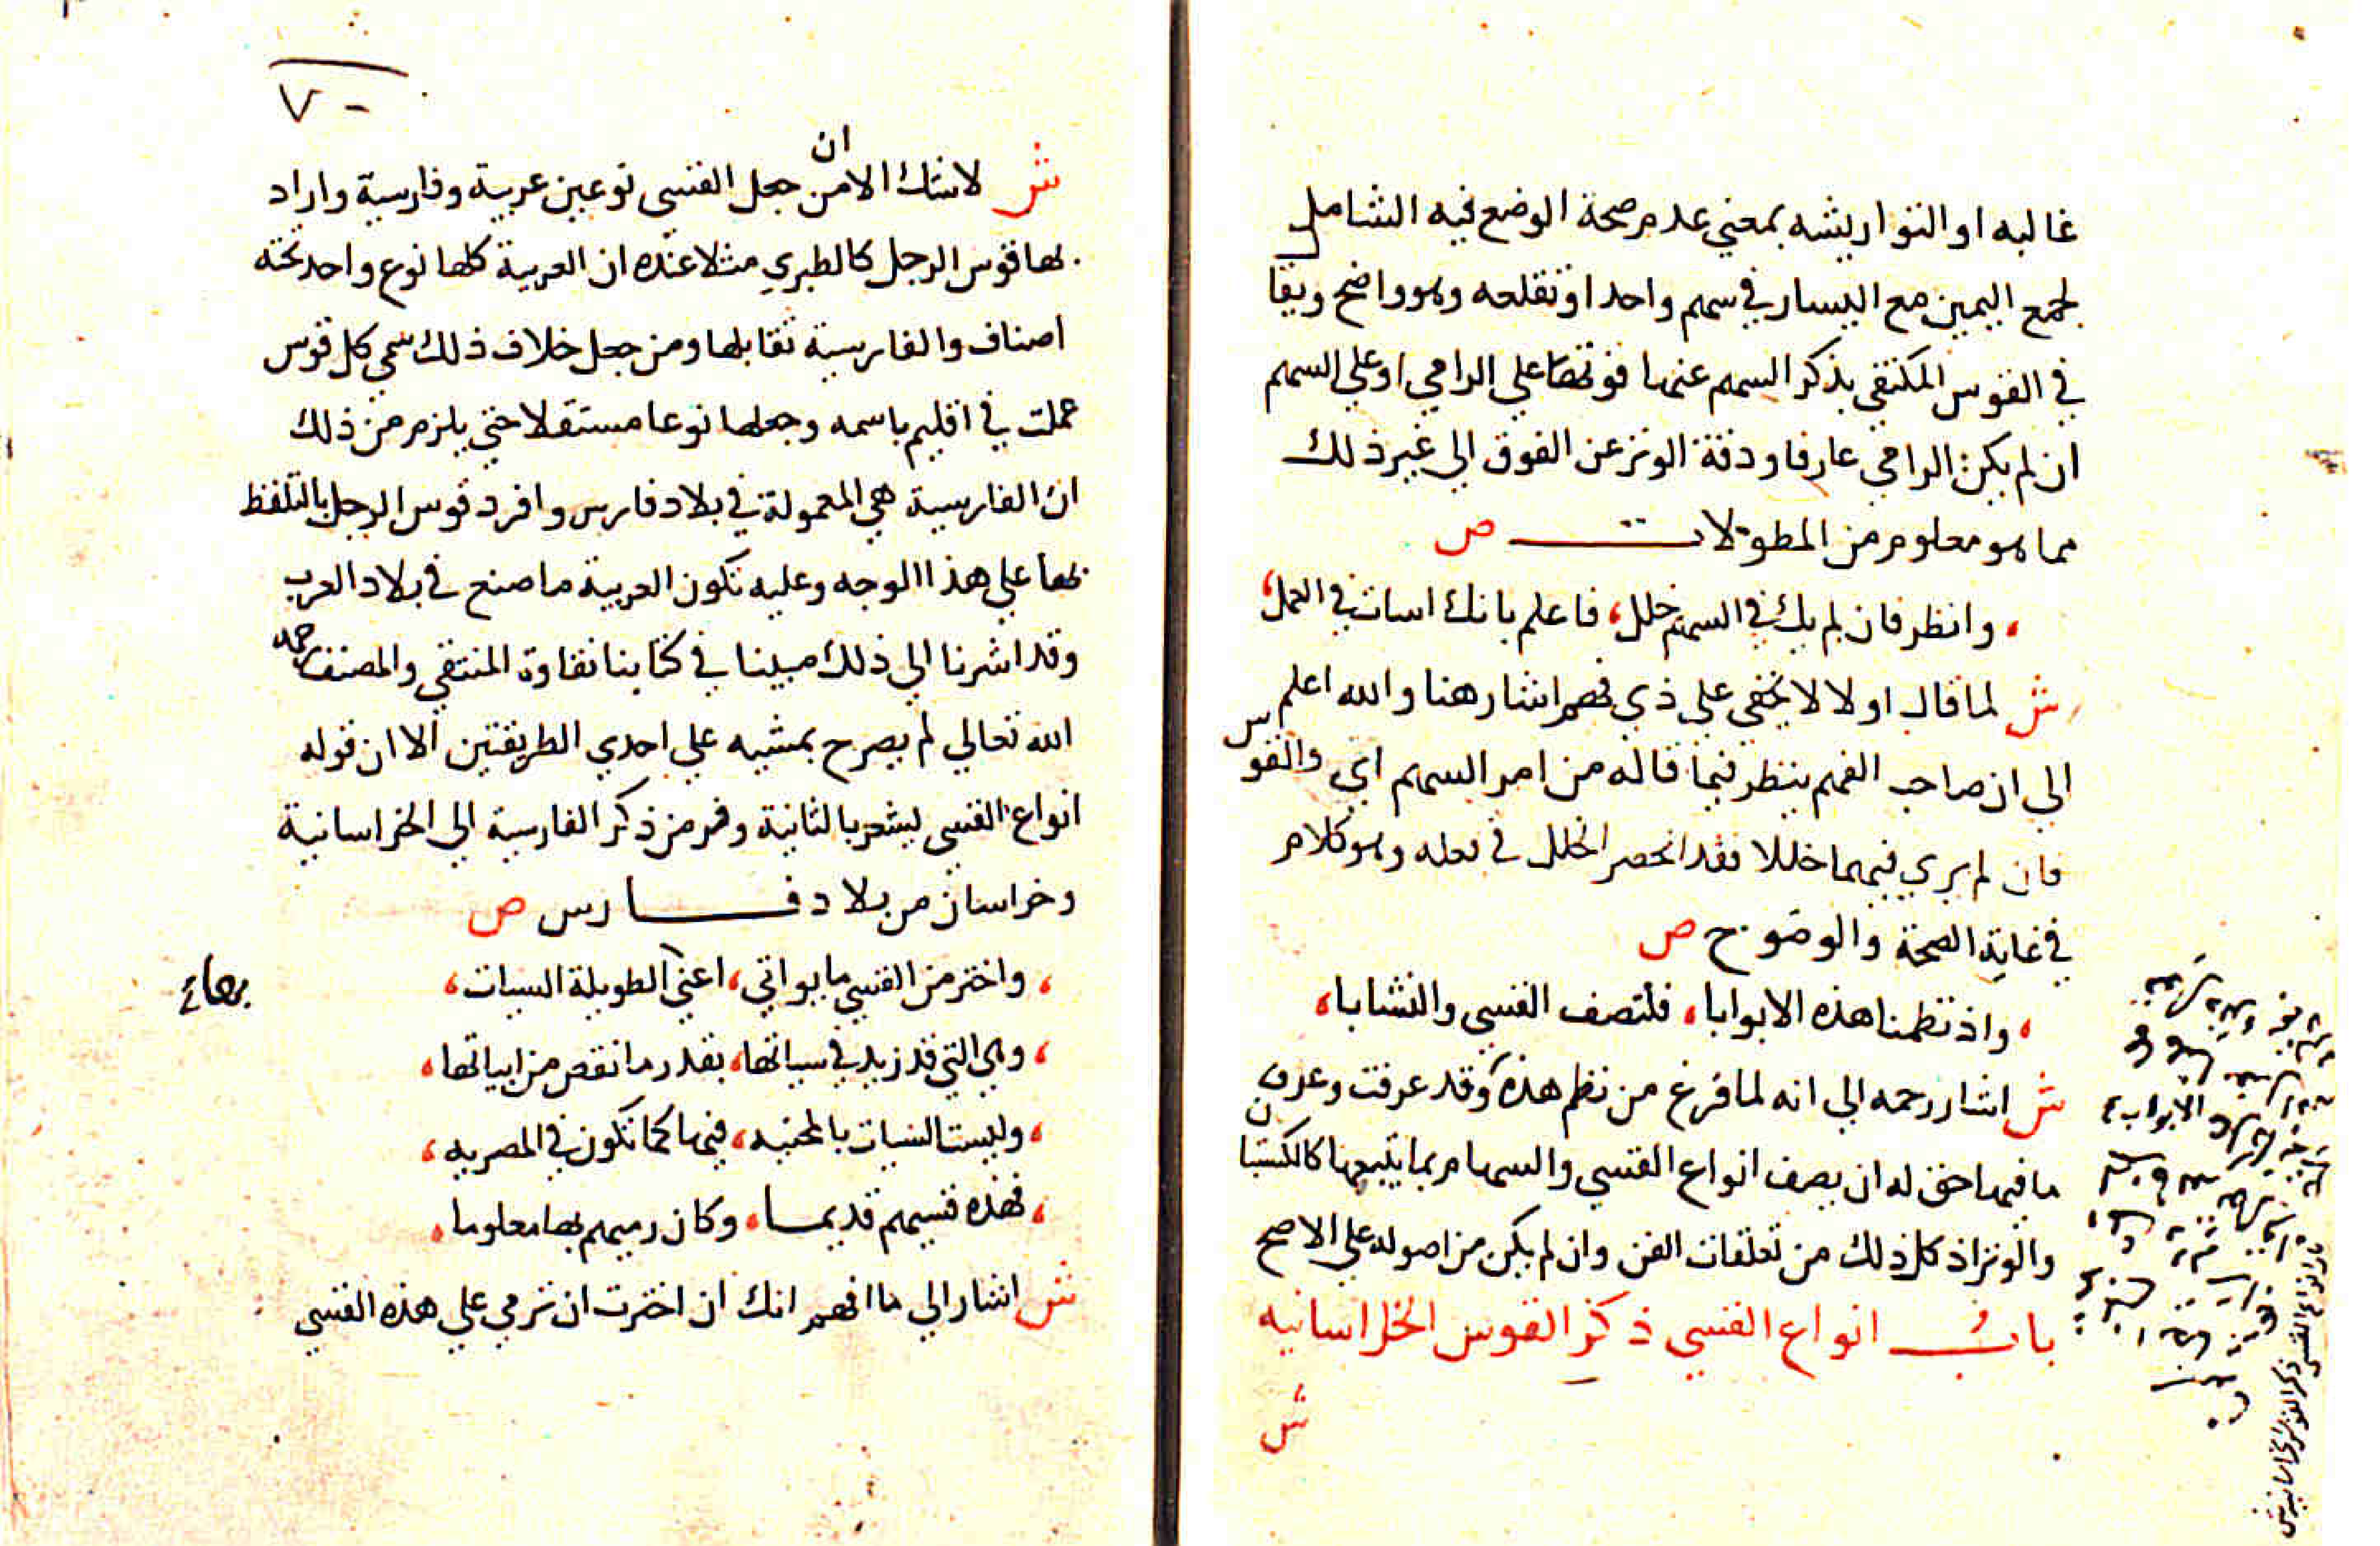 غالبه او التوا ريشه بمعني عدم صحة الوضع فيه الشامل
لجمع اليمين مع اليسار في سهم واحد او تقلعه وهو واضح ويقا
في القوس المكتفي بذكر السهم عنها فوتها علي الرامي او علي السهم
ان لم يكن الرامي عارفا ودقة الوتر عن الفوق الي غير ذلك
مما هو معلوم من المطولات ص
وانظر فان لم يك في السهم خلل، فاعلم بانك اسات في العمل،
ش لما قال اولا لا يخفي علي ذي فهم اشار هنا والله اعلم
الي ان صاحب الفهم ينظر فيما قاله من امر السهم اي والقوس
فان لم يري فيهما خللا فقد انحصر الخلل في فعله وهو كلام
في غاية الصحة والوضوح ص
، واذ نظمنا هذه الابوابا، فلنصف القسي والنشابا،
ش اشار رحمه الي انه لما فرغ من نظم هذه وقد عرفت وعرف
ما فيها حق له ان يصف انواع القسي والسهام وبما يتبعها كالكستبان
والوتر اذ كل ذلك من تعلقات الفن وان لم يكن من اصوله علي الاصح
باب انواع القسي ذكر القوس الخراسانيه
ش
٧٠
ش لا شك الا ان من جعل القسي نوعين عربية وفارسية واراد
بها قوس الرجل كالطبري مثلا عنده ان العربية كلها نوع واحد تحته
اصناف والفارسية تقابلها ومن جعل خلاف ذلك سمي كل قوس
عملت في اقليم باسمه وجعلها نوعا مستقلا حتي يلزم من ذلك
ان الفارسية هي المعمولة في بلاد فارس وافرد قوس الرجل بالتلفظ
بها علي هذا الوجه وعليه تكون العربية ما صنع في بلاد العرب
وقد اشرنا الي ذلك مبينا في كتابنا نقاوة المنتقي والمصنف رحمه
الله تعالي لم يصرح بمشيه علي احدي الطريقتين الا ان قوله
انواع القسي يشعر بالثانية وفر من ذكر الفارسية الي الخراسانية
وخراسان من بلاد فارس ص
، واختر من القسي ما يواتي، اعني الطويلة السيات،
، وهي التي قد زيد في سياتها، بقدر ما نقص من ابياتها،
، وليست السيات بالمحنيه، فيها كما تكون في المصريه،
، فهذه قسيهم قديما، وكان رميهم بها معلوما،
ش اشار الي ما افهم انك ان اخترت ان ترمي علي هذه القسي